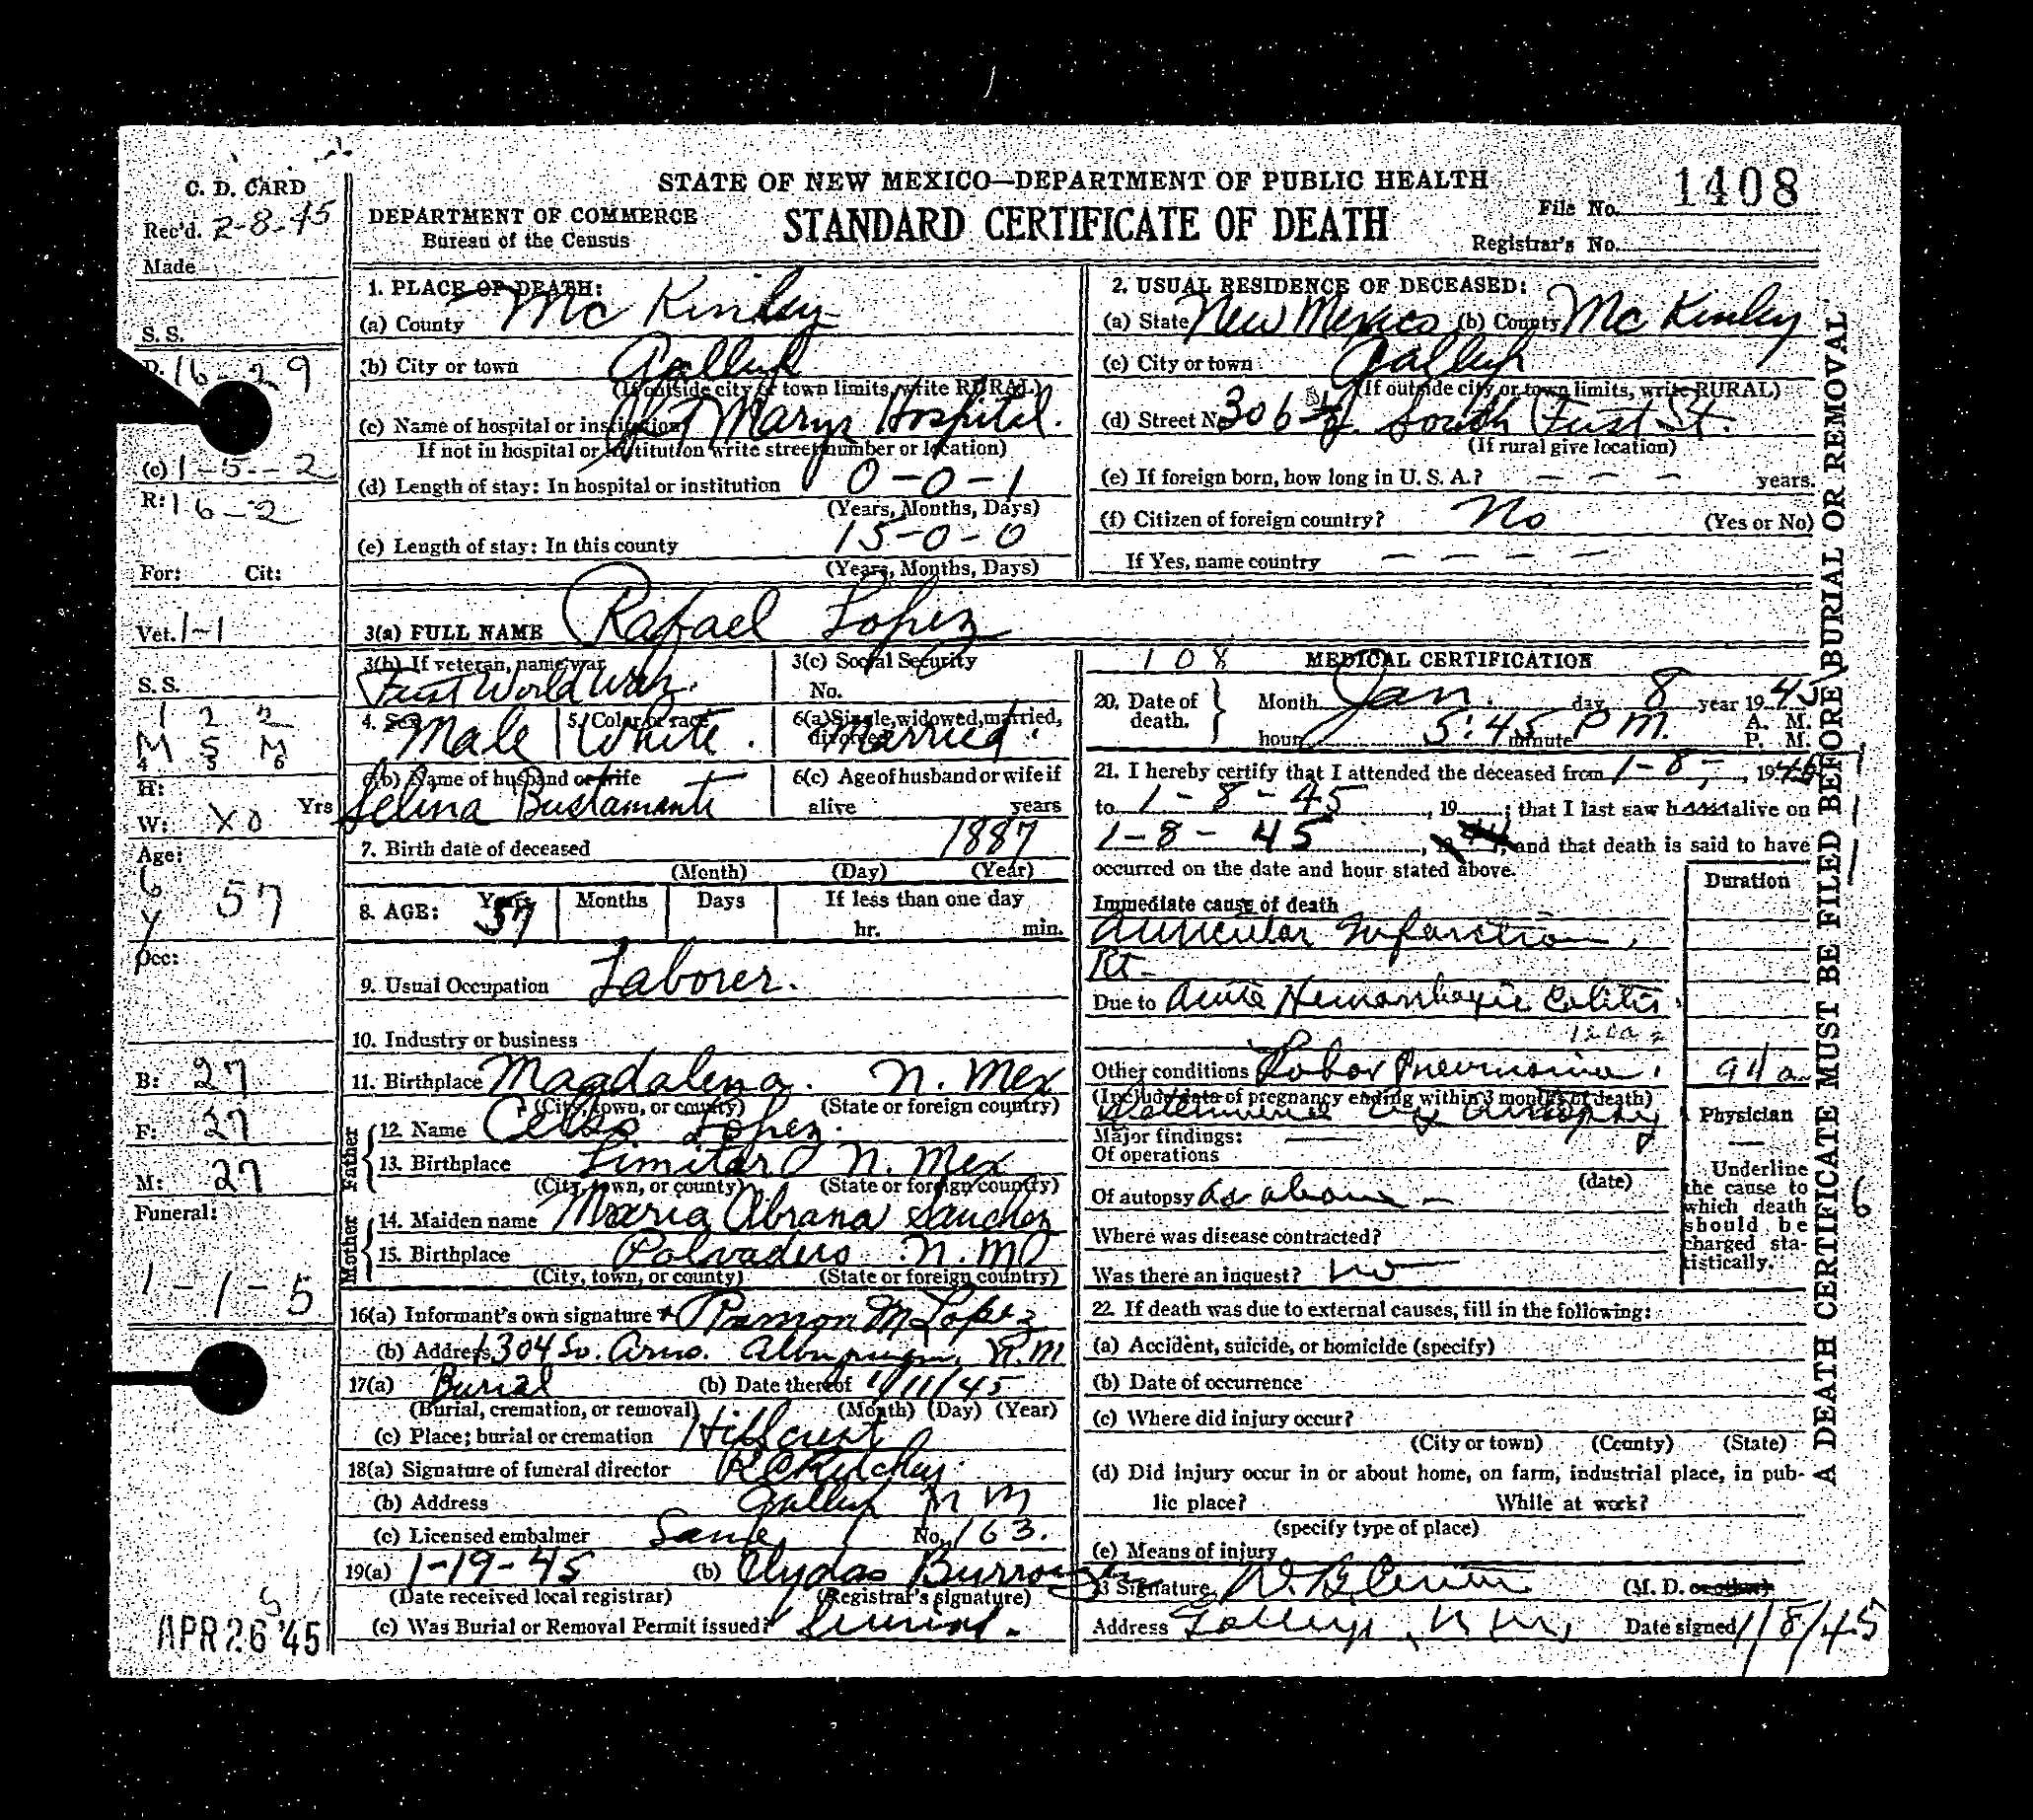 C. D. CARD
Rec'd. 2-8-45
Made
S. S.
D. 16-29
(c) 1-5-2
R: 16-2
For: Cit:
Vet. 1-1
S. S.
1 2 2
M 5 M
4 5 6
H: Yrs
W: X0
Age:
57
Occ:
B: 27
F: 27
M: 27
Funeral:
1-1-5
APR 26 '45
STATE OF NEW MEXICO—DEPARTMENT OF PUBLIC HEALTH
DEPARTMENT OF COMMERCE
Bureau of the Census
STANDARD CERTIFICATE OF DEATH
File No. 1408
Registrar's No.
1. PLACE OF DEATH:
(a) County Mc Kinley
(b) City or town Gallup
(If outside city or town limits, write RURAL)
(c) Name of hospital or institution St Marys Hospital.
If not in hospital or institution write street number or location)
(d) Length of stay: In hospital or institution 0-0-1
(Years, Months, Days)
(e) Length of stay: In this county 15-0-0
(Years, Months, Days)
2. USUAL RESIDENCE OF DECEASED:
(a) State New Mexico (b) County Mc Kinley
(c) City or town Gallup
(If outside city or town limits, write RURAL)
(d) Street No. 306 South First St.
(If rural give location)
(e) If foreign born, how long in U. S. A.? - - - years.
(f) Citizen of foreign country? No (Yes or No)
If Yes, name country - - - -
3(a) FULL NAME Rafael Lopez
3(b) If veteran, name war First World War.
3(c) Social Security No.
4. Sex Male 5. Color or race White
6(a) Single, widowed, married, divorced Married
6(b) Name of husband or wife Selina Bustamante
6(c) Age of husband or wife if alive years
7. Birth date of deceased 1887
(Month) (Day) (Year)
8. AGE: Years 57 Months Days If less than one day
hr. min.
9. Usual Occupation Laborer.
10. Industry or business
11. Birthplace Magdalena. N. Mex
(City, town, or county) (State or foreign country)
Father
12. Name Celso Lopez.
13. Birthplace Limitar N. Mex
(City, town, or county) (State or foreign country)
Mother
14. Maiden name Maria Abrana Sanchez
15. Birthplace Polvadero N. M
(City, town, or county) (State or foreign country)
16(a) Informant's own signature Ramon M Lopez
(b) Address 1304 So. Arno. Albuquerque, N. M
17(a) Burial (b) Date thereof 1/11/45
(Burial, cremation, or removal) (Month) (Day) (Year)
(c) Place; burial or cremation Hillcrest
18(a) Signature of funeral director
(b) Address Gallup N M
(c) Licensed embalmer Same No. 163.
19(a) 1-19-45 (b) Clydas Burroughs
(Date received local registrar) (Registrar's signature)
(c) Was Burial or Removal Permit issued?
108 MEDICAL CERTIFICATION
20. Date of death. Month Jan. day 8 year 1945
hour 5:45 minute P M. A. M.
P. M.
21. I hereby certify that I attended the deceased from 1-8-, 1945
to 1-8-45, 19 ; that I last saw h alive on
1-8-45, and that death is said to have
occurred on the date and hour stated above.
Duration
Immediate cause of death
Auricular Infarction,
Rt-
Due to Acute Hemorrhagic Colitis.
Other conditions Lobar Pneumonia.
(Include date of pregnancy ending within 3 months of death)
Determined by autopsy
Major findings:
Of operations
(date)
Of autopsy As above -
Where was disease contracted?
Was there an inquest? no
Physician
Underline the cause to which death should be charged statistically.
22. If death was due to external causes, fill in the following:
(a) Accident, suicide, or homicide (specify)
(b) Date of occurrence
(c) Where did injury occur?
(City or town) (County) (State)
(d) Did injury occur in or about home, on farm, industrial place, in pub-
lic place? While at work?
(specify type of place)
(e) Means of injury
23 Signature (M. D. or other)
Address Gallup, N M, Date signed 1/8/45
A DEATH CERTIFICATE MUST BE FILED BEFORE BURIAL OR REMOVAL
6